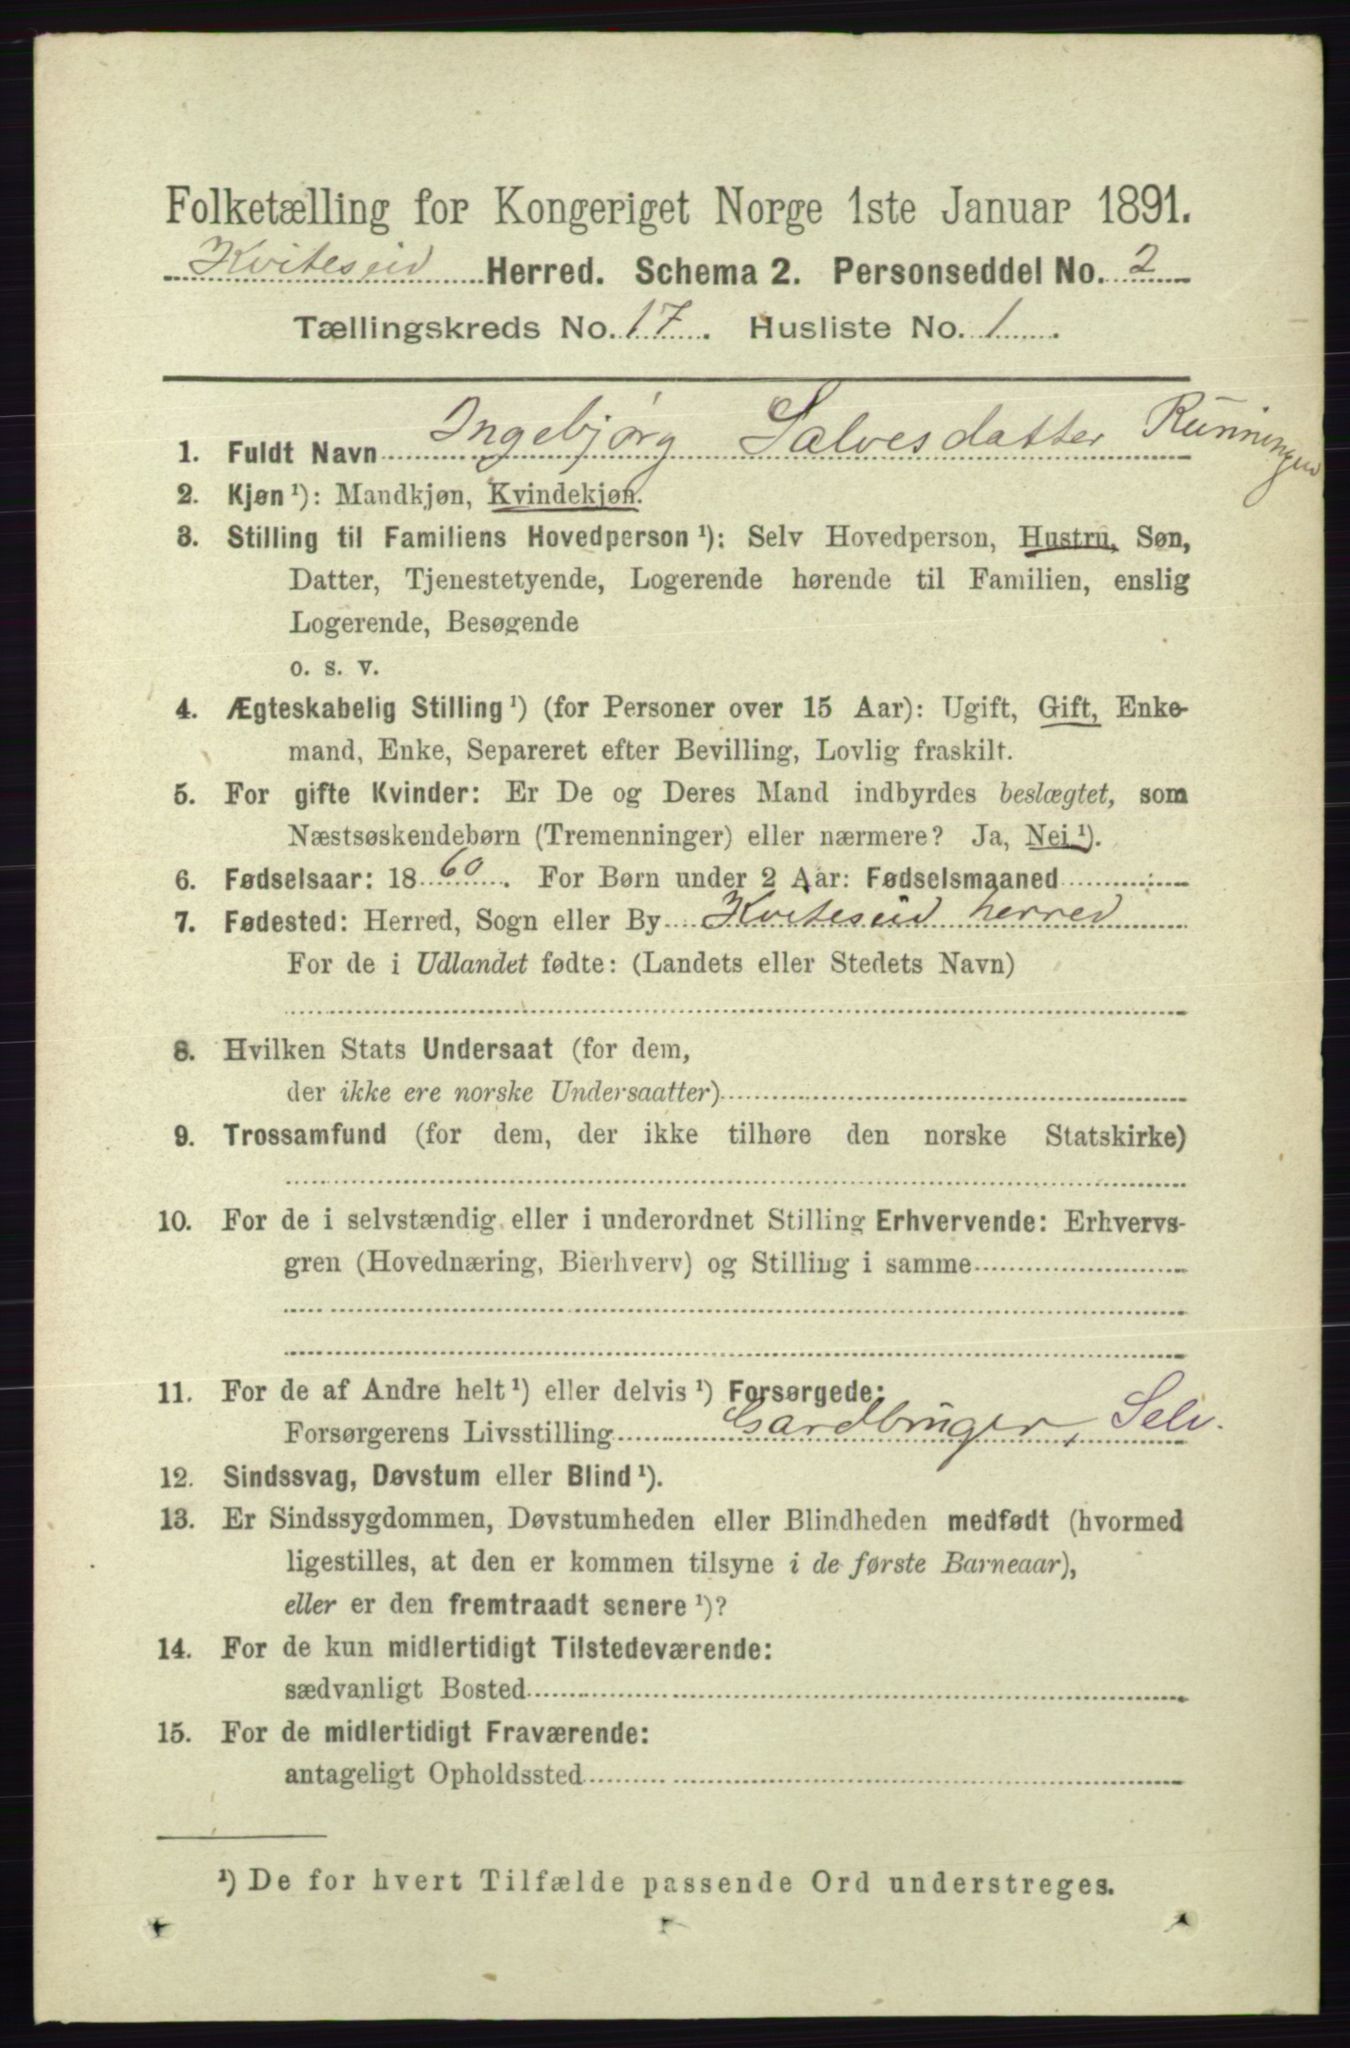 Folketælling for Kongeriget Norge 1ste Januar 1891.
Kviteseid Herred. Schema 2. Personseddel No. 2
Tællingskreds No. 17. Husliste No. 1.
1. Fuldt Navn Ingebjørg Salvesdatter Runningen
2. Kjøn ¹): Mandkjøn, Kvindekjøn.
3. Stilling til Familiens Hovedperson ¹): Selv Hovedperson, Hustru, Søn,
Datter, Tjenestetyende, Logerende hørende til Familien, enslig
Logerende, Besøgende
o. s. v.
4. Ægteskabelig Stilling ¹) (for Personer over 15 Aar): Ugift, Gift, Enke-
mand, Enke, Separeret efter Bevilling, Lovlig fraskilt.
5. For gifte Kvinder: Er De og Deres Mand indbyrdes beslægtet, som
Næstsøskendebørn (Tremenninger) eller nærmere? Ja, Nei ¹).
6. Fødselsaar: 1860. For Børn under 2 Aar: Fødselsmaaned
7. Fødested: Herred, Sogn eller By Kviteseid herred
For de i Udlandet fødte: (Landets eller Stedets Navn)
8. Hvilken Stats Undersaat (for dem,
der ikke ere norske Undersaatter)
9. Trossamfund (for dem, der ikke tilhøre den norske Statskirke)
10. For de i selvstændig eller i underordnet Stilling Erhvervende: Erhvervs-
gren (Hovednæring, Bierhverv) og Stilling i samme
11. For de af Andre helt ¹) eller delvis ¹) Forsørgede:
Forsørgerens Livsstilling Gardbruger, Selv.
12. Sindssvag, Døvstum eller Blind ¹).
13. Er Sindssygdommen, Døvstumheden eller Blindheden medfødt (hvormed
ligestilles, at den er kommen tilsyne i de første Barneaar),
eller er den fremtraadt senere ¹)?
14. For de kun midlertidigt Tilstedeværende:
sædvanligt Bosted
15. For de midlertidigt Fraværende:
antageligt Opholdssted
¹) De for hvert Tilfælde passende Ord understreges.